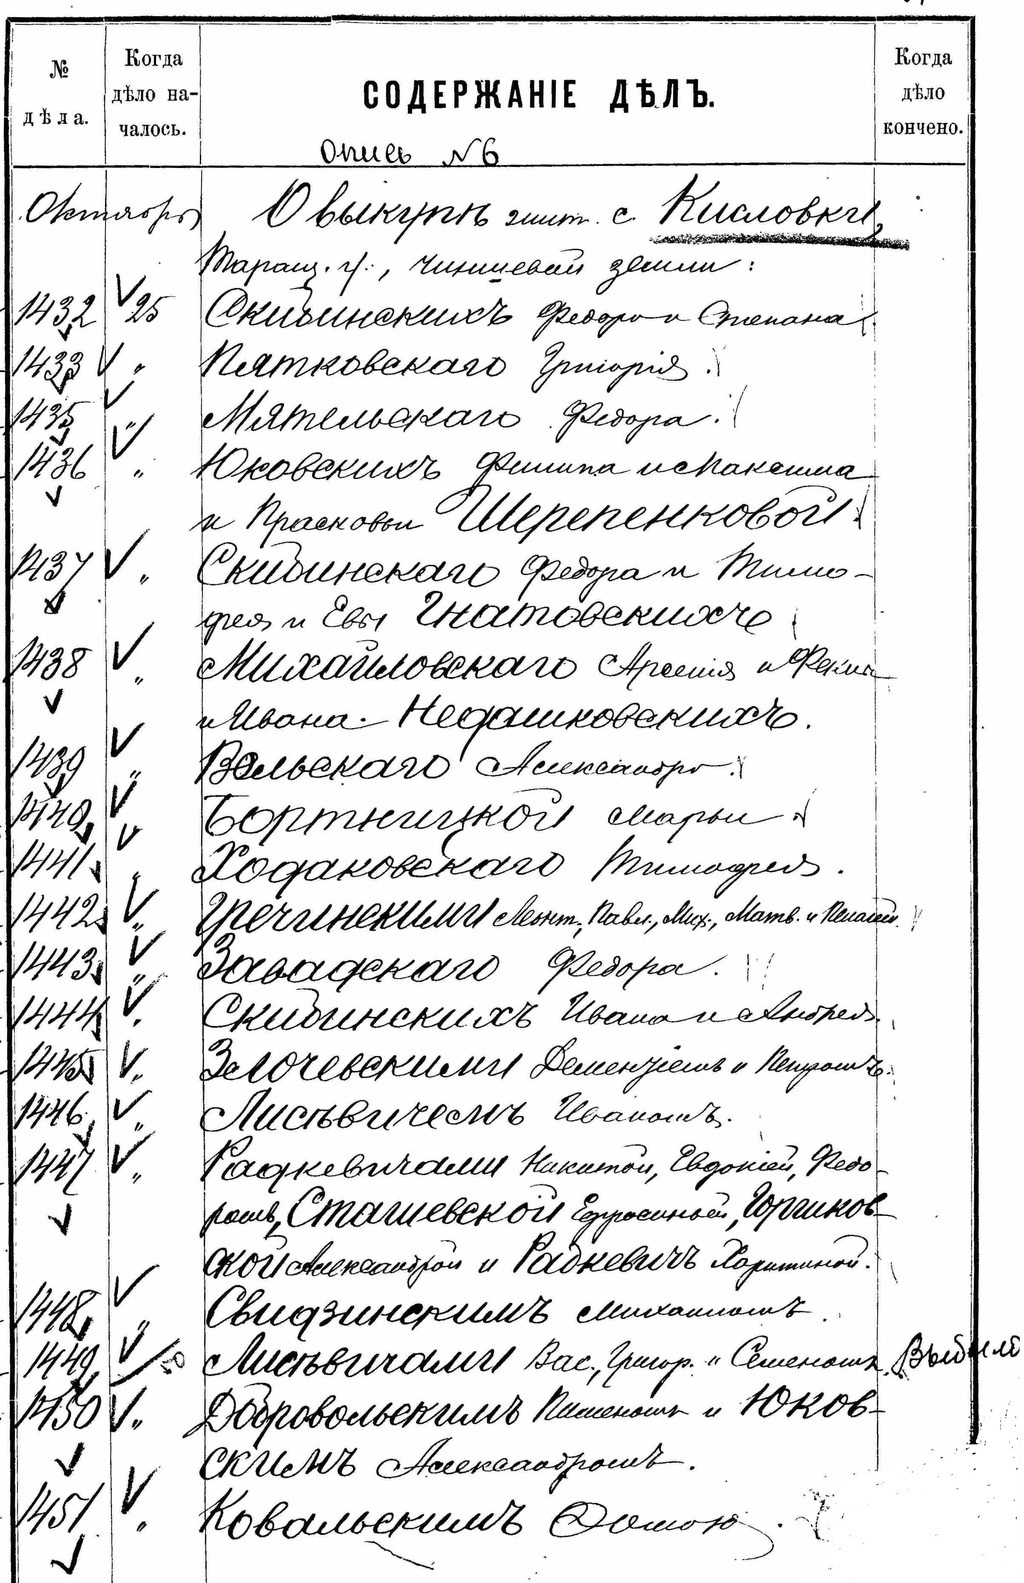 № дѣла.
Когда дѣло началось.
СОДЕРЖАНІЕ ДѢЛЪ.
Когда дѣло кончено.
Опись №6
Октябрь О выкупѣ жит. с. Кисловки,
Таращ. у., чиншевой земли:
1432 25 Скибинскихъ Федора и Степана
1433 „ Пятковскаго Григорія.
1435 „ Мятельскаго Федора.
1436 „ Юковскихъ Филипа и Максима
и Прасковьи Шерепенковой
1437 „ Скибинскаго Федора и Тимо-
фея и Евы Гнатовскихъ
1438 „ Михайловскаго Арсенія и Феклы
и Ивана Недашковскихъ.
1439 „ Вольскаго Александра.
1440 „ Бортницкой Марьи
1441 „ Ходаковскаго Тимофея.
1442 „ Гречинскими Леонт., Павл., Мих., Матв. и
1443 „ Завадскаго Федора.
1444 „ Скибинскихъ Ивана и Андрея
1445 „ Злочевскими Дементіемъ и Петромъ.
1446 „ Лисѣвичемъ Иваномъ.
1447 „ Радкевичами Никитой, Евдокіей, Федо-
ромъ, Сташевской Ефросиньей, Юрчиков-
ской Александрой и Радкевичъ Харитиной.
1448 „ Свидзинскимъ Михаиломъ
1449 Лисѣвичами Вас., Григор. и Семеномъ Выбыло
1450 „ Добровольскимъ Пименомъ и Юков-
скимъ Александромъ.
1451 „ Ковальскимъ Фомою